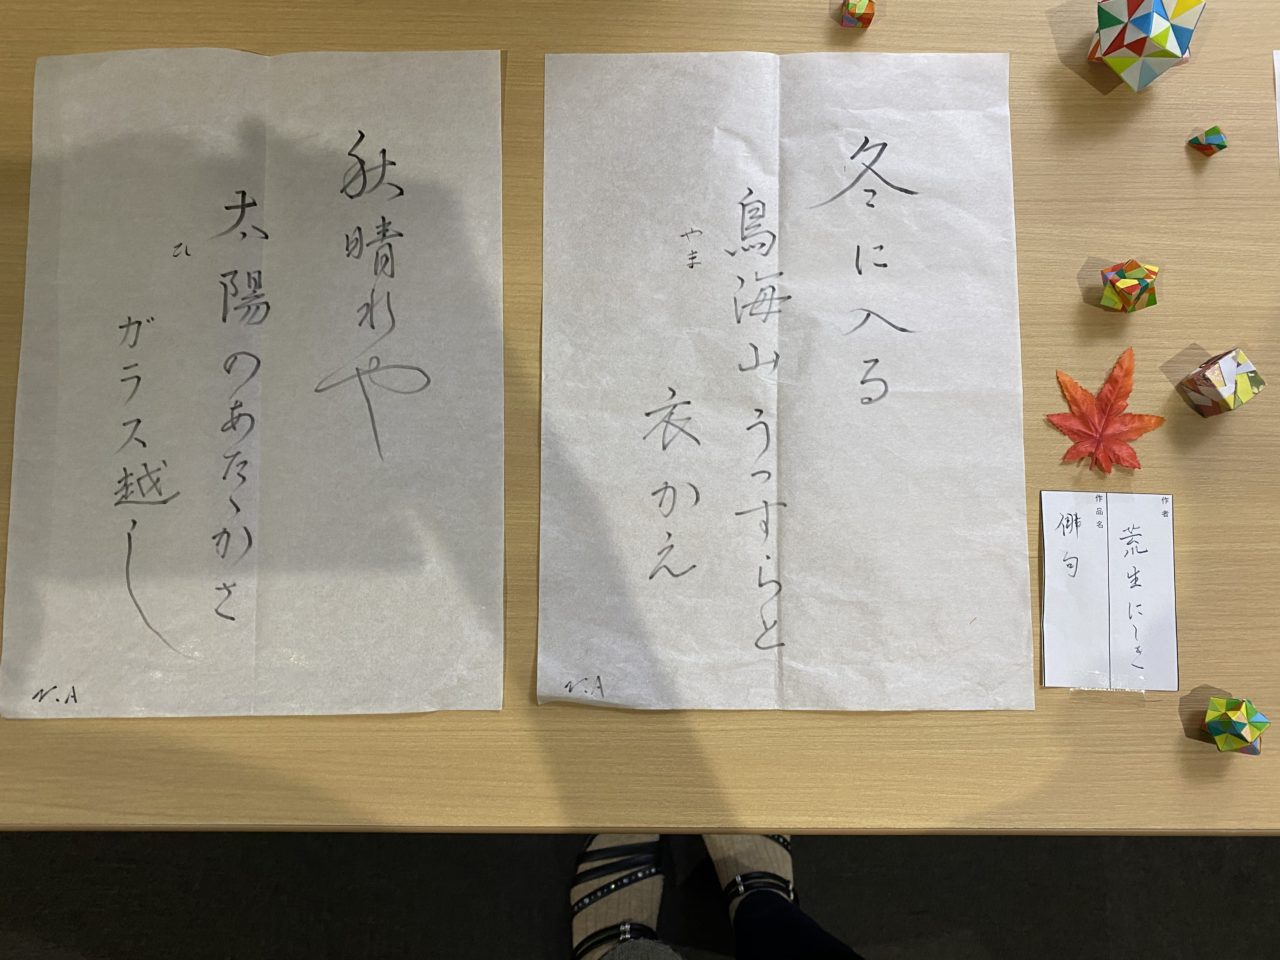 冬に入る
鳥海山うっすらと
やま
衣かえ
N.A
秋晴れや
太陽のあたゝかさ
ひ
ガラス越し
N.A
作者
荒生にしき
作品名
俳句